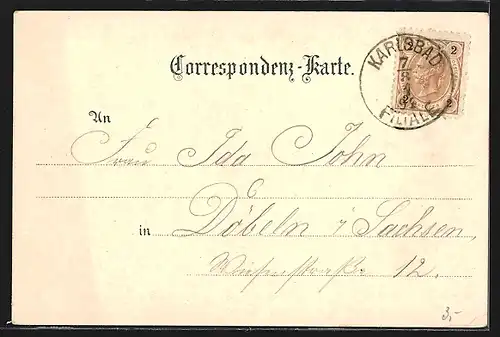 Correspondenz-Karte.
KARLSBAD
FILIALE
2
2
An
Frau Ida John
in Döbeln i/Sachsen,
Wiesenstraße 12.
3,-